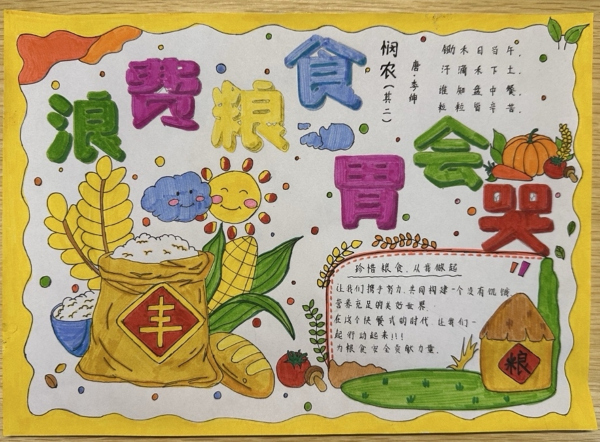 浪费粮食
胃会哭
悯农（其二）
唐·李绅
锄禾日当午，
汗滴禾下土。
谁知盘中餐，
粒粒皆辛苦。
丰
珍惜粮食，从吾做起
让我们携手努力，共同构建一个没有饥饿、
营养充足的美好世界
在这个快餐式的时代，让我们一
起行动起来！！！
为粮食安全贡献力量。
粮